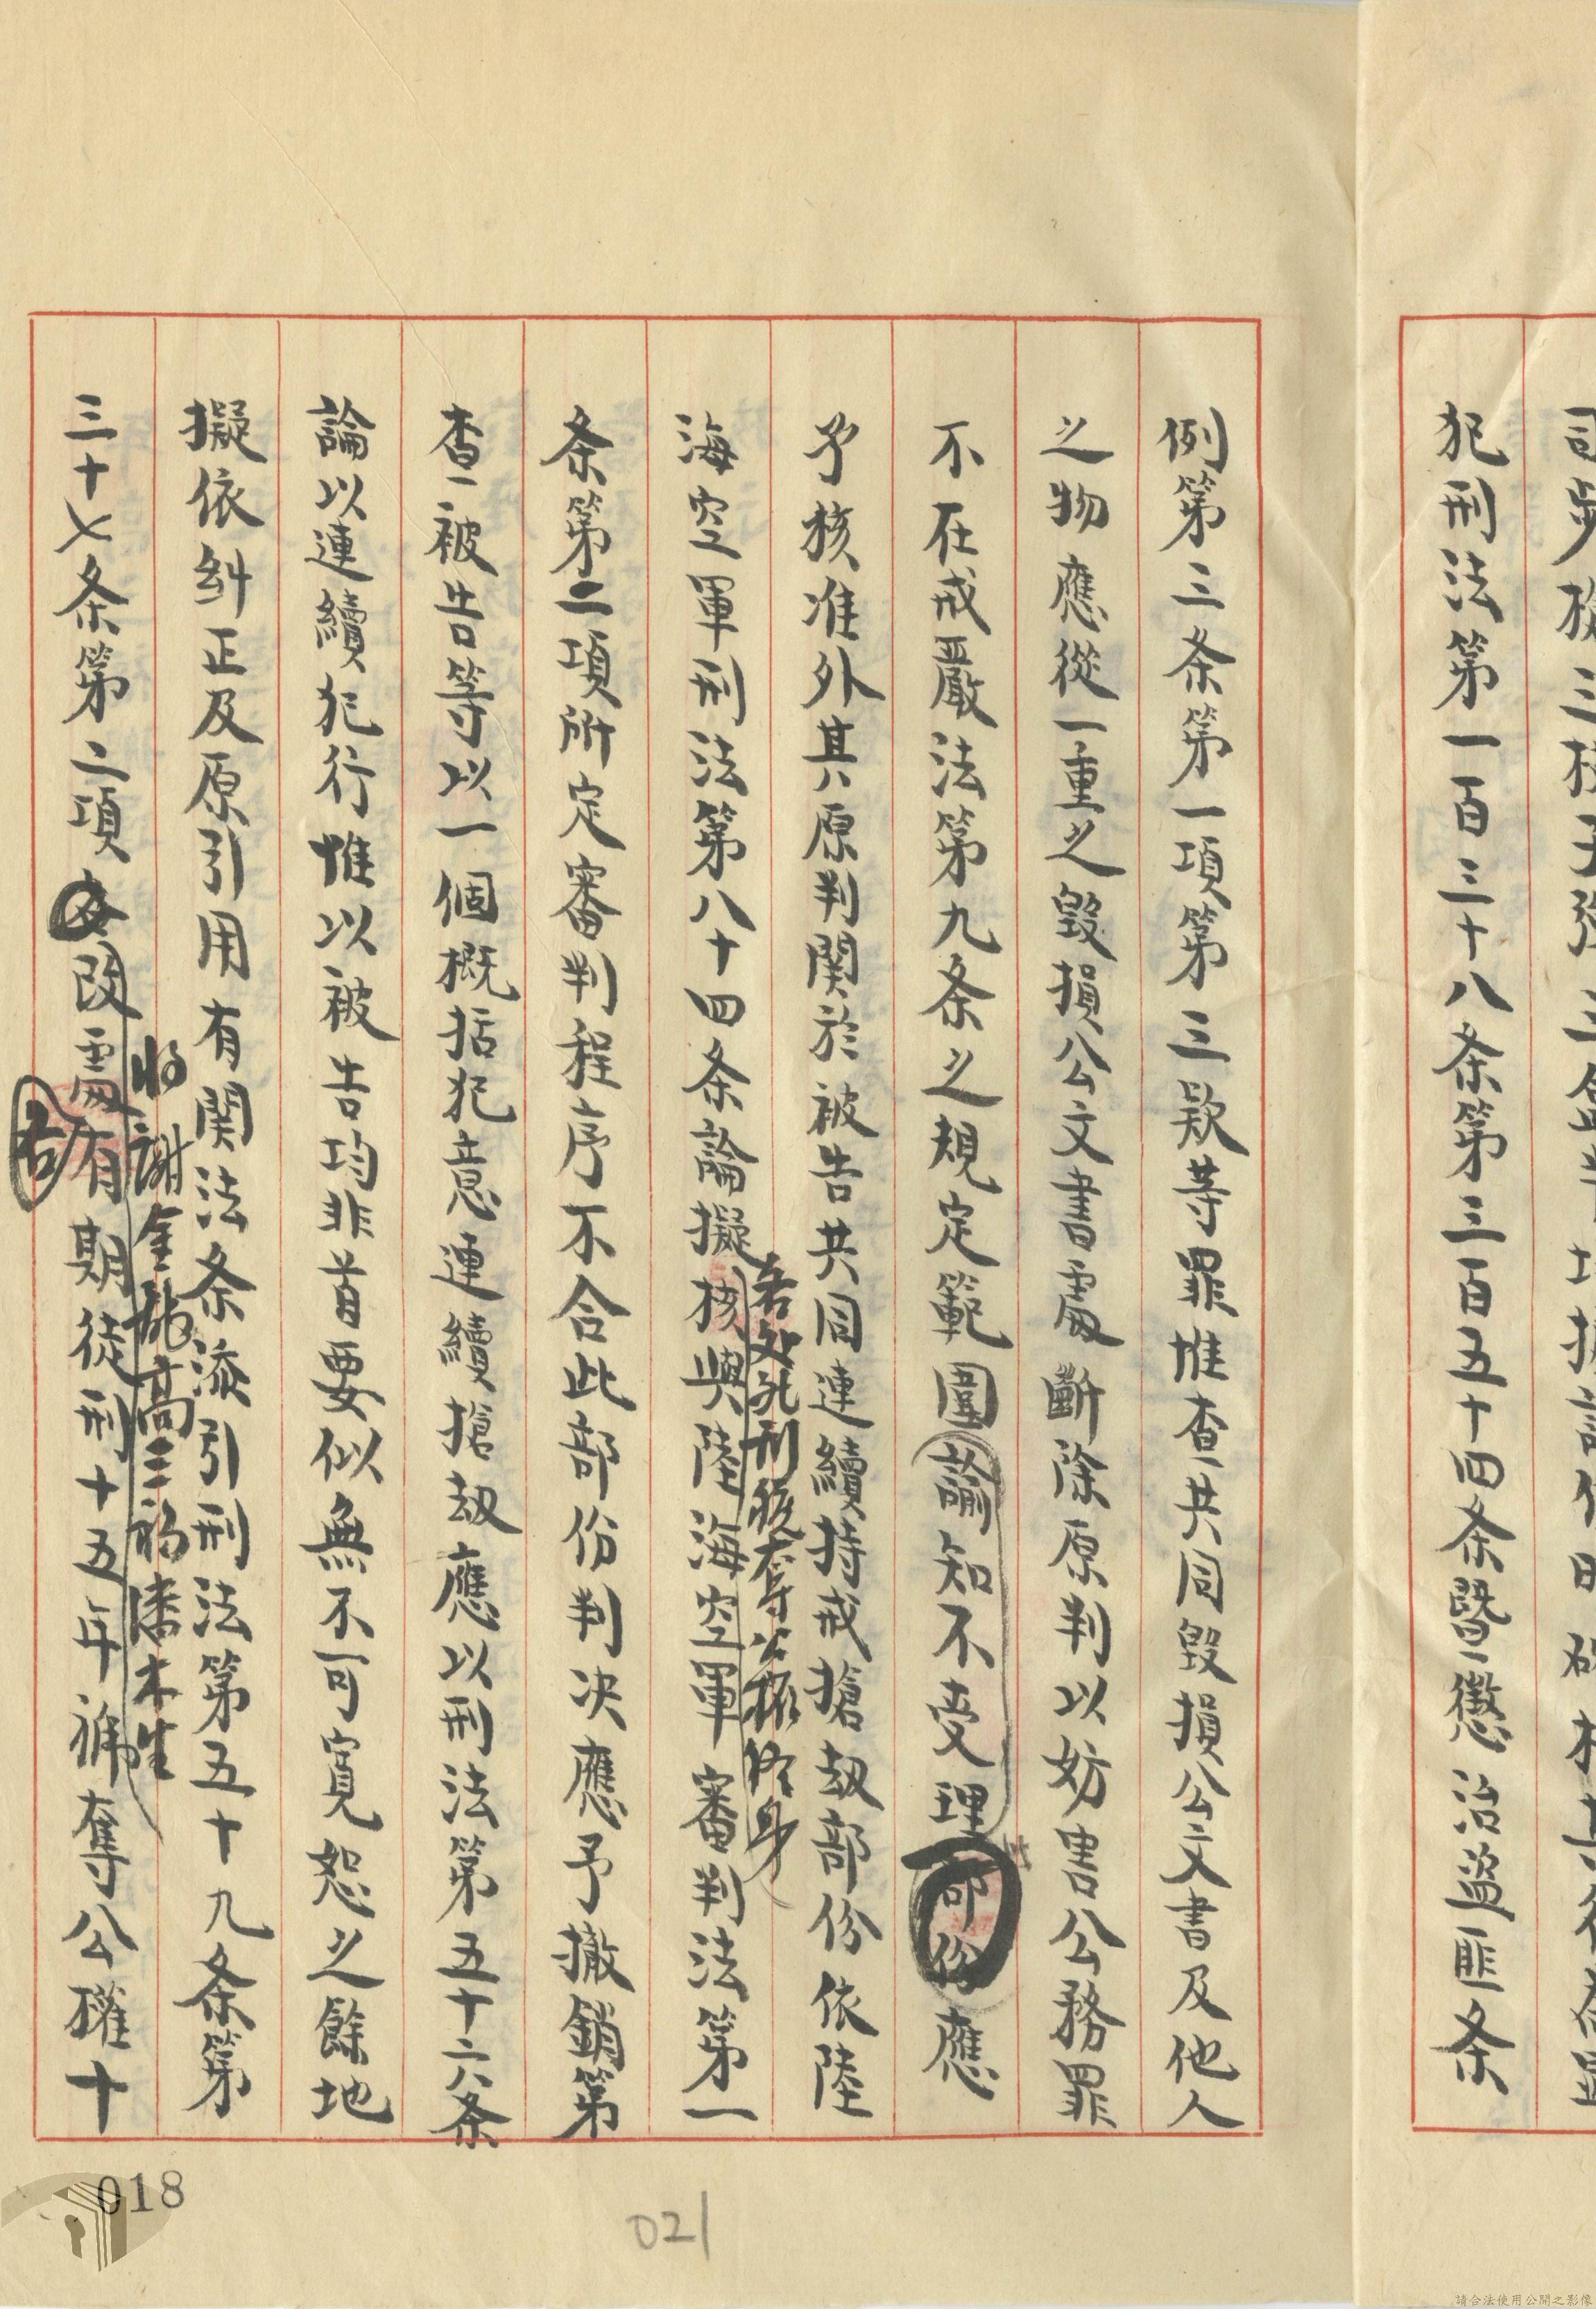 犯刑法第一百三十八条第三百五十四条暨懲治盜匪条
例第三条第一項第三款等罪惟查共同毀損公文書及他人
之物應從一重之毀損公文書處斷除原判以妨害公務罪
不在戒嚴法第九条之規定範圍諭知不受理部份應
予核准外其原判関於被告共同連續持戒搶劫部份依陸
若处死刑褫奪公权終身
海空軍刑法第八十四条論擬核與陸海空軍審判法第一
条第二項所定審判程序不合此部份判决應予撤銷第
查被告等以一個概括犯意連續搶劫應以刑法第五十六条
論以連續犯行惟以被告均非首要似無不可寬恕之餘地
擬依糾正及原引用有関法条添引刑法第五十九条第
將謝金龍高三福潘木生
三十七条第二項改處有期徒刑十五年褫奪公權十
各
018
021
請合法使用公開之影像